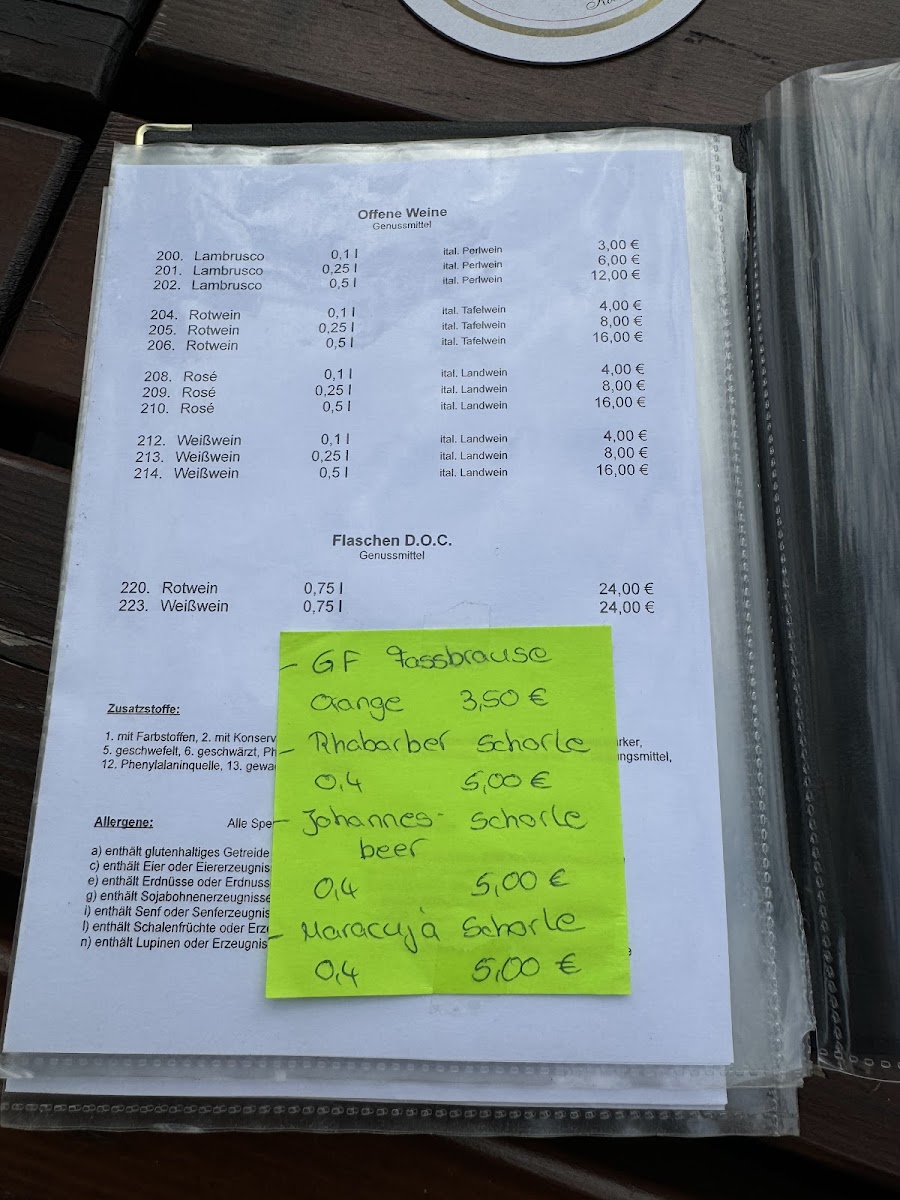 Offene Weine
Genussmittel
200. Lambrusco 0,1 l ital. Perlwein 3,00 €
201. Lambrusco 0,25 l ital. Perlwein 6,00 €
202. Lambrusco 0,5 l ital. Perlwein 12,00 €
204. Rotwein 0,1 l ital. Tafelwein 4,00 €
205. Rotwein 0,25 l ital. Tafelwein 8,00 €
206. Rotwein 0,5 l ital. Tafelwein 16,00 €
208. Rosé 0,1 l ital. Landwein 4,00 €
209. Rosé 0,25 l ital. Landwein 8,00 €
210. Rosé 0,5 l ital. Landwein 16,00 €
212. Weißwein 0,1 l ital. Landwein 4,00 €
213. Weißwein 0,25 l ital. Landwein 8,00 €
214. Weißwein 0,5 l ital. Landwein 16,00 €
Flaschen D.O.C.
Genussmittel
220. Rotwein 0,75 l 24,00 €
223. Weißwein 0,75 l 24,00 €
Zusatzstoffe:
1. mit Farbstoffen, 2. mit Konserv
5. geschwefelt, 6. geschwärzt, Ph
12. Phenylalaninquelle, 13. gewa
Allergene: Alle Spe
a) enthält glutenhaltiges Getreide
c) enthält Eier oder Eiererzeugnis
e) enthält Erdnüsse oder Erdnuss
g) enthält Sojabohnenerzeugnisse
i) enthält Senf oder Senferzeugnis
l) enthält Schalenfrüchte oder Erze
n) enthält Lupinen oder Erzeugnis
- GF Fassbrause
Orange 3,50 €
- Rhabarber Schorle
0,4 5,00 €
- Johannes- Schorle
beer
0,4 5,00 €
- Maracuja Schorle
0,4 5,00 €